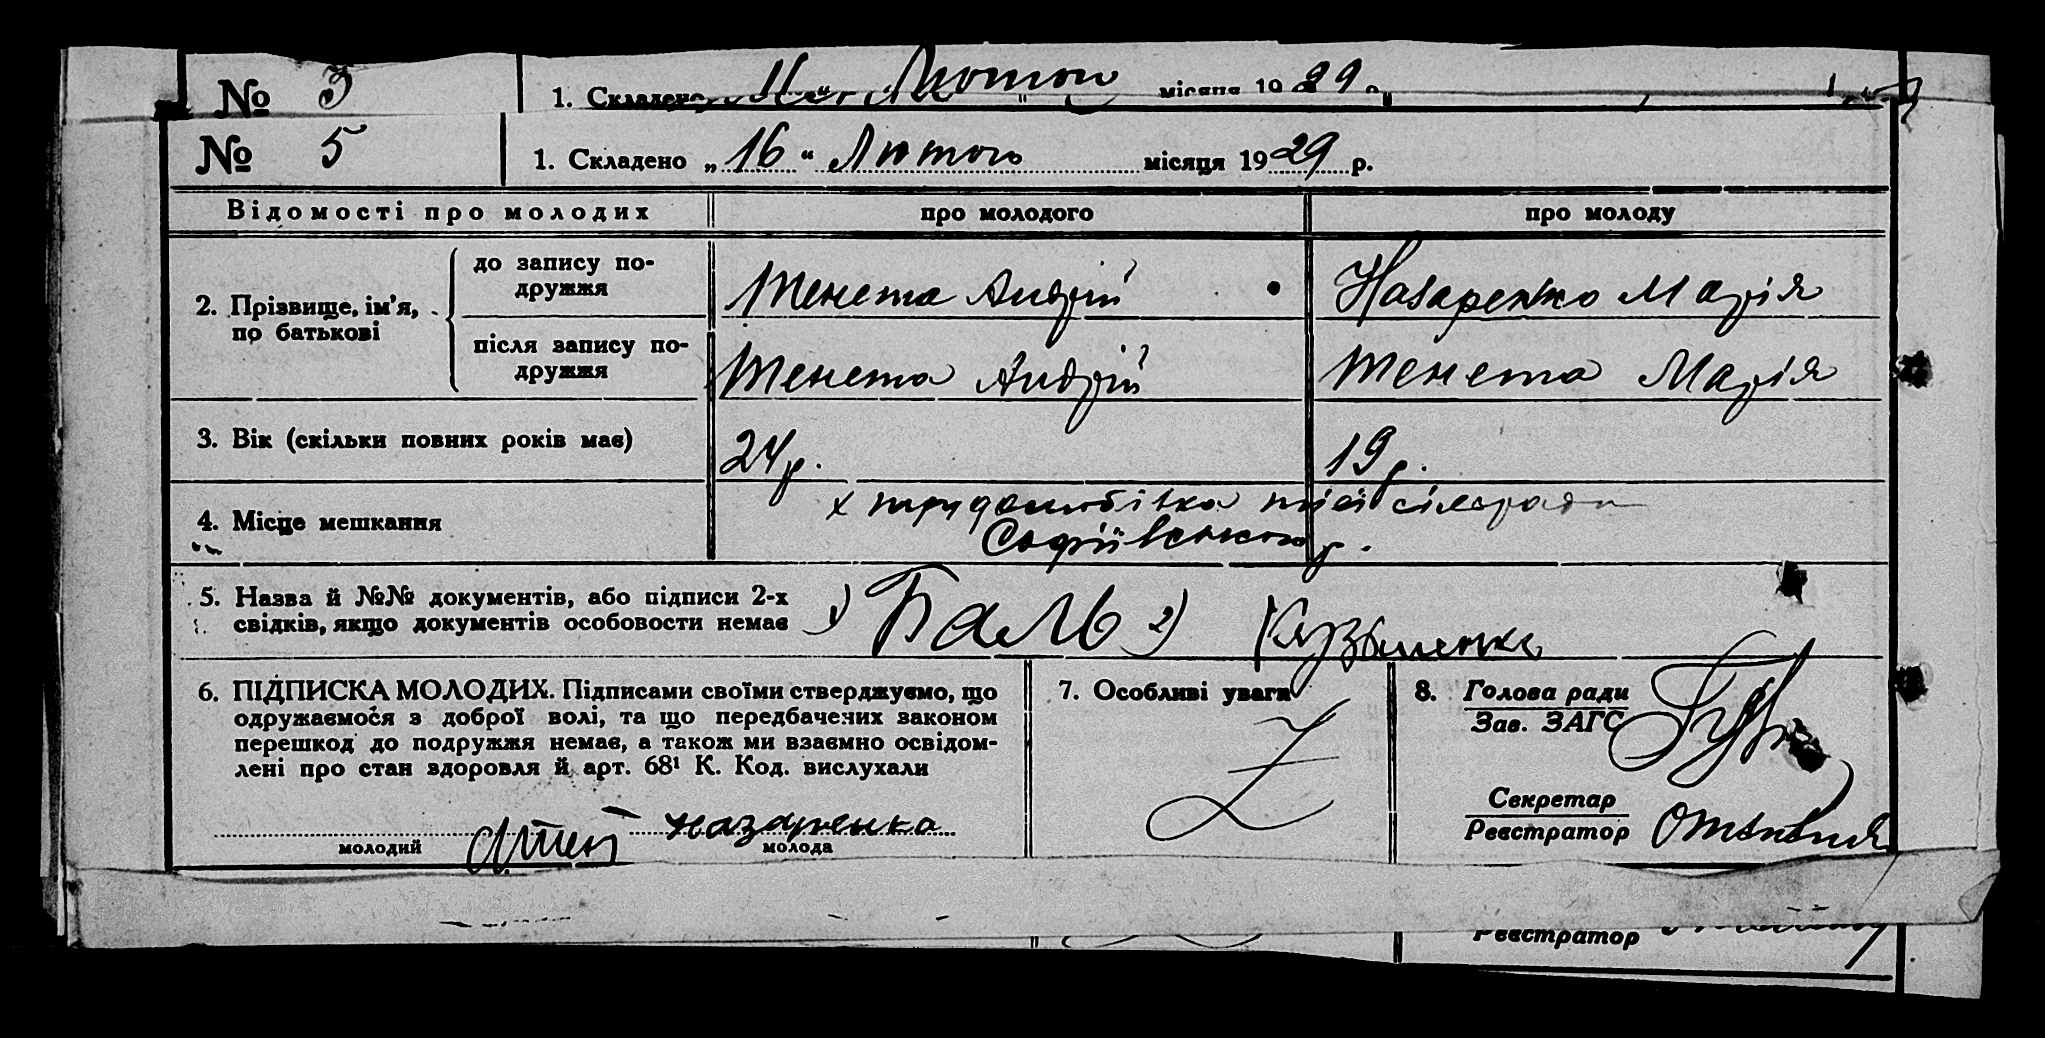 № 3
1. Складено Лютого місяця 1929 р.
№ 5
1. Складено „16“ Лютого місяця 1929 р.
Відомості про молодих
про молодого
про молоду
2. Прізвище, ім'я, по батькові
до запису подружжя
Тенета Андрій
Назаренко Марія
після запису подружжя
Тенета Андрій
Тенета Марія
3. Вік (скільки повних років має)
24 р.
19 р.
4. Місце мешкання
х. трудолюбівка тієї сілеради
Софіївського р.
5. Назва й №№ документів, або підписи 2-х
свідків, якщо документів особовости немає
1) Баль 2) Кузьменко
6. ПІДПИСКА МОЛОДИХ. Підписами своїми стверджуємо, що
одружаємося з доброї волі, та що передбачених законом
перешкод до подружжя немає, а також ми взаємно освідом-
лені про стан здоровля й арт. 68¹ К. Код. вислухали
молодий
назаренко
молода
7. Особливі уваги
8. Голова ради
Зав. ЗАГС
Секретар
Реєстратор
Реєстратор